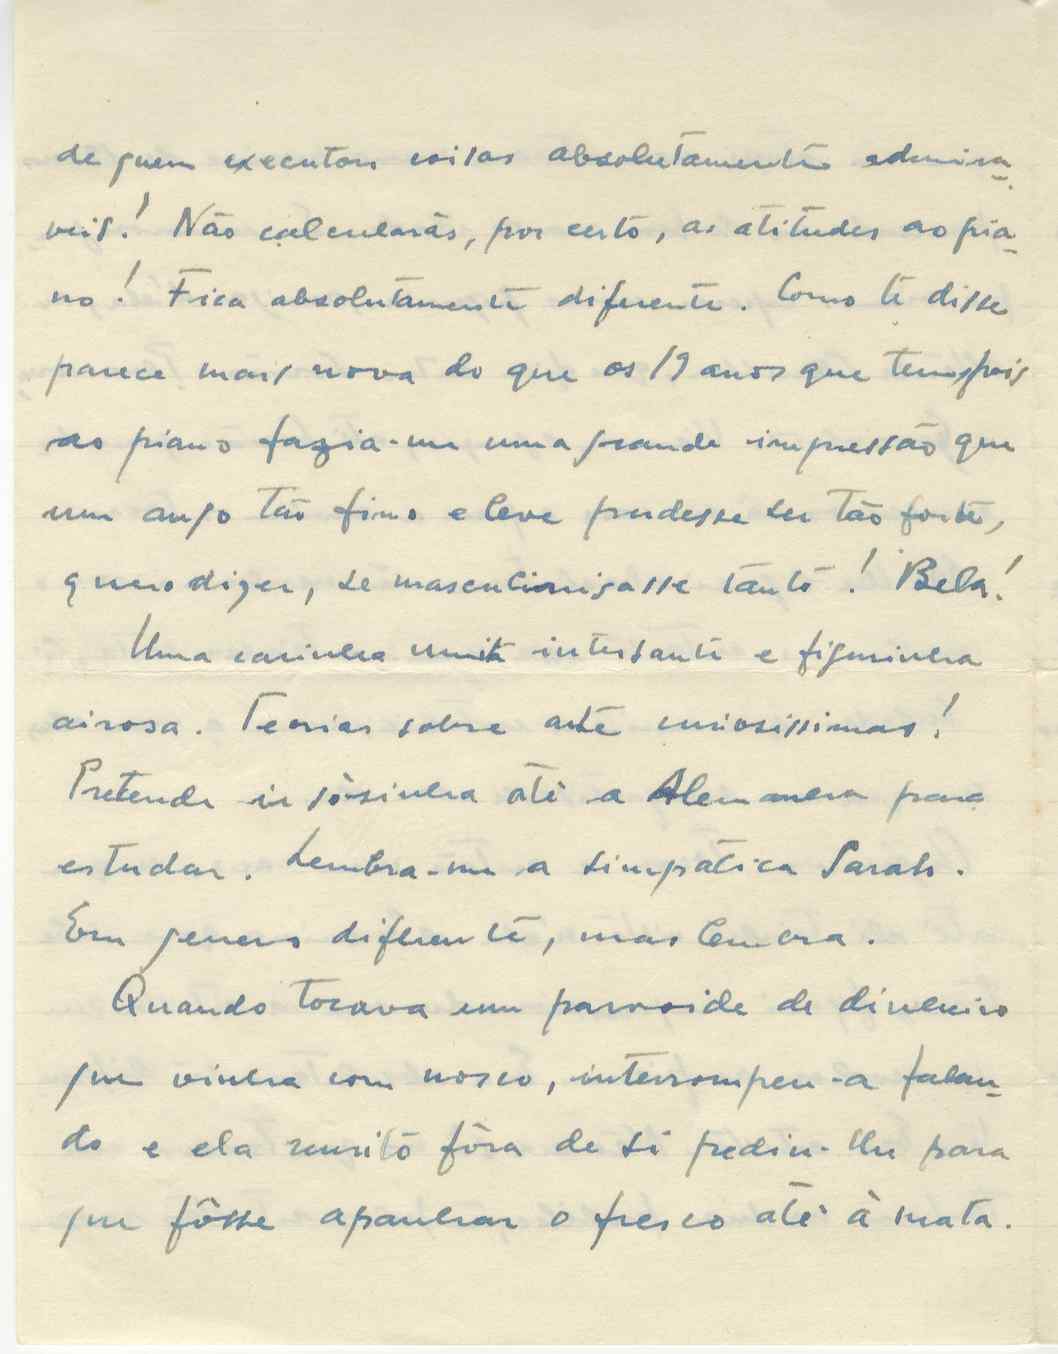 de quem executou coisas absolutamente admira-
veis! Não calcularás, por certo, as atitudes ao pia-
no! Fica absolutamente diferente. Como te disse
parece mais nova do que os 19 anos que tem, pois
ao piano fazia-me uma grande impressão que
um anjo tão fino e leve pudesse ser tão forte,
quero dizer, se masculinisasse tanto! Bela!
Uma carinha muito intersante e figurinha
airosa. Teorias sobre arte curiosissimas!
Pretende ir sòsinha até a Alemanha para
estudar. Lembra-me a simpática Sarah.
Em genero diferente, mas lembra.
Quando tocava um parvoide de dinheiro
que vinha com nosco, interrompeu-a falan-
do e ela muito fóra de si pediu-lhe para
que fôsse apanhar o fresco até à mata.